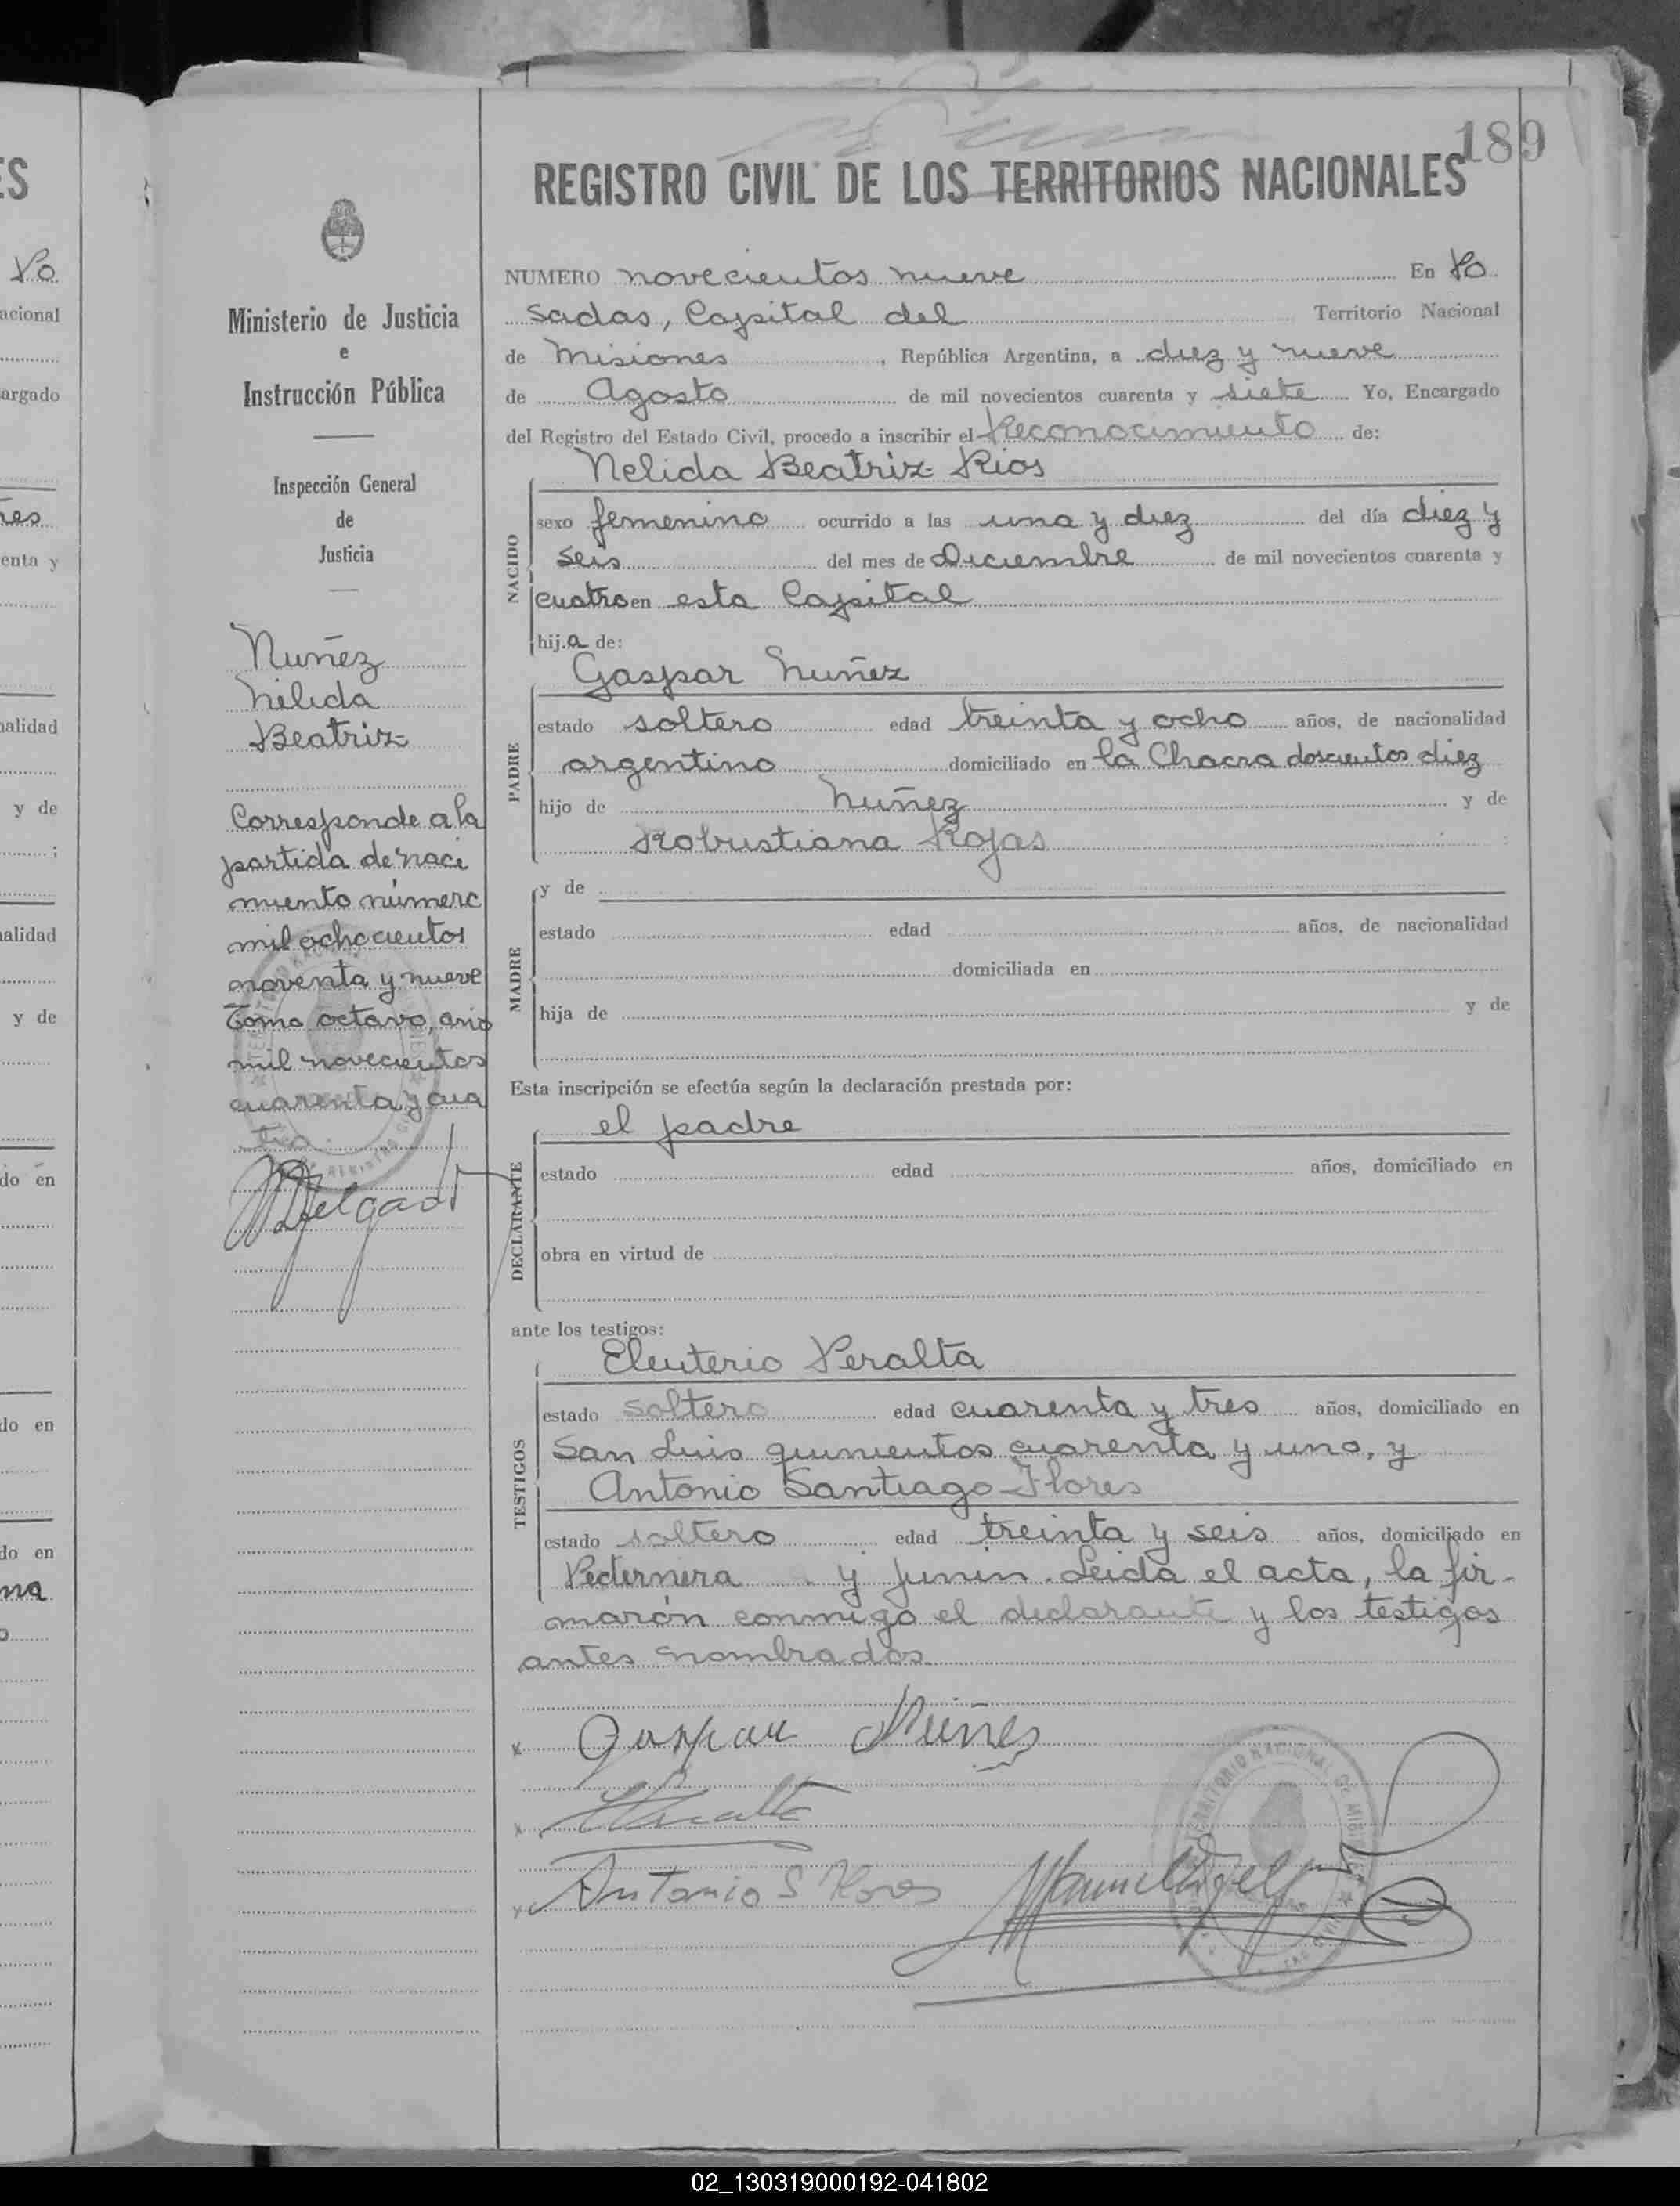 189
REGISTRO CIVIL DE LOS TERRITORIOS NACIONALES
NUMERO novecientos nueve En Po
sadas, Capital del Territorio Nacional
de Misiones, República Argentina, a diez y nueve
de Agosto de mil novecientos cuarenta y siete Yo, Encargado
del Registro del Estado Civil, procedo a inscribir el Reconocimiento de:
Nelida Beatriz Rios
NACIDO
sexo femenino ocurrido a las una y diez del día diez y
seis del mes de Diciembre de mil novecientos cuarenta y
cuatro en esta Capital
hija de:
Gaspar Nuñez
PADRE
estado soltero edad treinta y ocho años, de nacionalidad
argentino domiciliado en la Chacra doscientos diez
hijo de Nuñez y de
Robustiana Rojas
y de
MADRE
estado edad años, de nacionalidad
domiciliada en
hija de y de
Esta inscripción se efectúa según la declaración prestada por:
el padre
DECLARANTE
estado edad años, domiciliado en
obra en virtud de
ante los testigos:
Eleuterio Peralta
TESTIGOS
estado soltero edad cuarenta y tres años, domiciliado en
San Luis quinientos cuarenta y uno, y
Antonio Santiago Flores
estado soltero edad treinta y seis años, domiciliado en
Pedernera y Junin. Leida el acta, la fir-
marón conmigo el declarante y los testigos
antes nombrados
Gaspar Nuñes
Antonio S Flores
Ministerio de Justicia
e
Instrucción Pública
Inspección General
de
Justicia
Nuñez
Nelida
Beatriz
Corresponde a la
partida de naci
miento número
mil ochocientos
noventa y nueve
Tomo octavo, año
mil novecientos
cuarenta y cua
tro.
Delgado
ES
Po
acional
argado
res
enta y
nalidad
y de
;
nalidad
y de
do en
do en
do en
na
TERRITORIO NACIONAL DE MISIONES
02_130319000192-041802